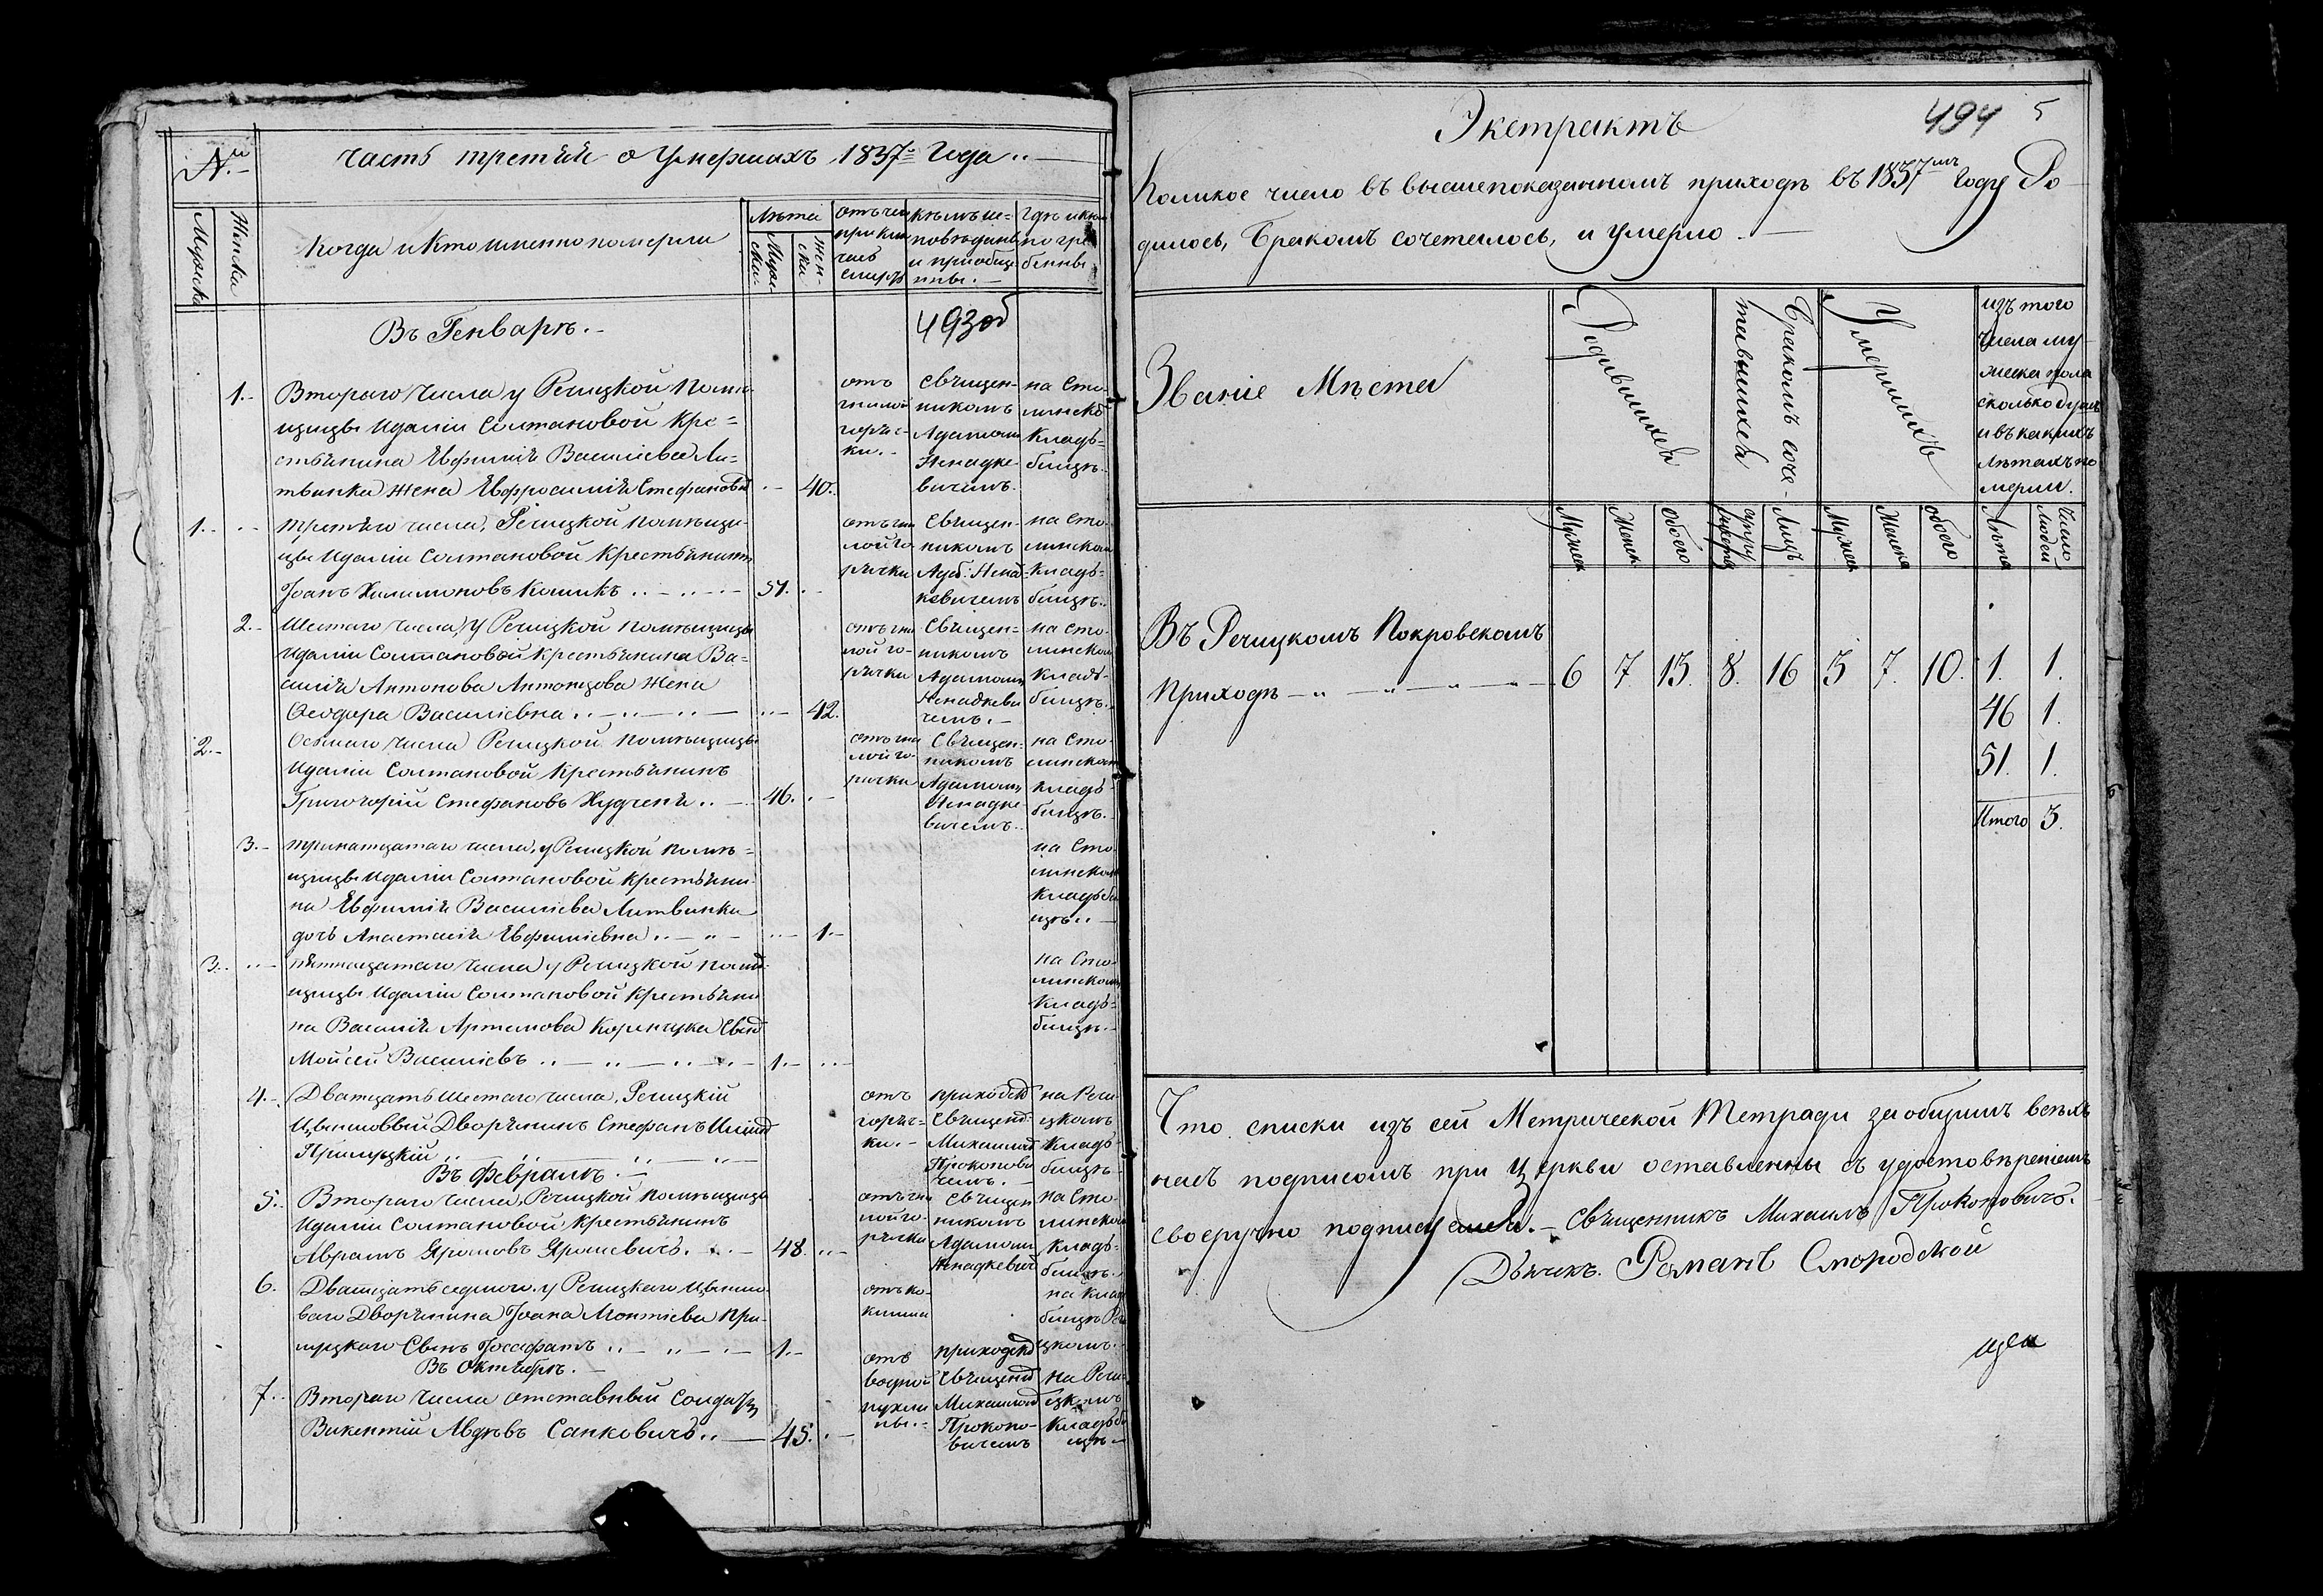 №и
Часть третяя о Умершихъ 1837го Года
Мужеска
Женска
Когда и Кто именно померли
Лѣта
Мужеска
Женска
отъ чего
приключилась
смерть
кѣмъ ис=
повѣданы
и приобще
ны.
Гдѣ и кѣмъ
погре
бены
Въ Генварѣ.
493об
1. Втораго Числа у Речицкой помѣ
щицы Идаліи Солтановой Кре=
стьянина Евфимія Василіева Ли=
твинка жена Евфросинія Стефанова 40.
отъ
гнилой
горяч=
ки.
Священ=
никомъ
Адамомъ
Ненадке
вичемъ.
на Сто
линскомъ
Кладъ=
бищѣ
1. Третяго числа, Речицкой помѣщи=
цы Идаліи Солтановой Крестьянинъ
Іоанъ Халимоновъ Кошикъ 51.
отъ гни
лой го
рячки
Священ=
никомъ
Ад: Ненад
кевичемъ
на Сто
линском
Кладъ=
бищѣ.
2. Шестаго Числа, У Речицкой помѣщицы
Идаліи Солтановой Крестьянина Ва=
силія Антонова Антонцова Жена
Феодора Василіевна 42.
отъ гни
лой го=
рячки
Священ=
никомъ
Адамомъ
Ненадкеви
чемъ.
на Сто
линском
кладъ=
бищѣ.
2. Осьмаго Числа Речицкой помѣщицы
Идаліи Солтановой Крестьянинъ
Григорій Стефановъ Худченя 46.
отъ гни
лой го=
рячки
Священ=
никомъ
Адамомъ
Ненадке
вичемъ.
на Сто
линском
кладъ=
бищѣ.
3. тринатцатаго числа, у Речицкой помѣ=
щицы Идаліи Солтановой крестьяни
на Евфимія Василіева Литвинка
дочь Анастасія Евфиміевна 1.
на Сто
линском
Кладъби
щѣ.
3. пятнатцатаго Числа у Речицкой помѣ
щицы Идаліи Солтановой Крестьяни
на Василія Артемова Сынъ
Мойсей Василіевъ 1.
на Сто
линскомъ
Кладъ=
бищѣ.
4. Дватцать шестаго числа, Речицкій
Дворянинъ Стефанъ
Прилуцкій
отъ
горяч=
ки.
приходск
Священ
Михаилом
Прокопови
чемъ.
на Речи
цкомъ
Кладъ
бищѣ
Въ Февралѣ.
5. Втораго Числа, Речицкой помѣщицы
Идаліи Солтановой, Крестьянинъ
Аврамъ Ярошовъ Ярошевичъ. 48.
отъ гни
лой го=
рячки
Священ
никомъ
Адамомъ
Ненадкевич
на Сто=
линском
кладъ=
бищѣ.
6. Дватцать седмаго, у Речицкаго
Дворянина Іоана Монтіева При=
луцкаго Сынъ Іосафатъ 1.
отъ ко=
клюша
на Клад
бищѣ Речи
цкомъ.
Въ Октябрѣ.
7. Втораго Числа отставный Солдатъ
Викентій Авдѣевъ Санковичъ 45.
отъ
водной
пухли
ны.
приходск
Священ
Михаилом
Прокопо=
вичемъ
на Речи
цкомъ
Кладъби
щѣ
Экстрактъ
494 5
Коликое число въ вышепоказанномъ приходѣ въ 1837мъ Году Ро
дилось, Бракомъ сочеталось, и Умерло.
Званіе Мѣста
Родившихся
Бракомъ соче=
тавшихся
Умершихъ
изъ того
Числа му
жеска пола
сколько душъ
и въ какихъ
лѣтахъ по
мерли.
Мужеск
Женск
Обоего
супру
жествъ
Лицъ
Мужеск
Женска
обоего
Лѣта
Число
людей
Въ Речицкомъ Покровскомъ
Приходѣ 6 7. 13. 8. 16 3 7. 10. 1. 1.
46 1.
51. 1.
Итого 3.
Что списки изъ сей Метрической Тетради за общимъ всѣхъ
насъ подписомъ при Церкви оставленны съ удостовѣреніемъ
своеручно подписуемся. Священникъ Михаилъ Прокоповичъ.
Дьячекъ. Романъ Смородской